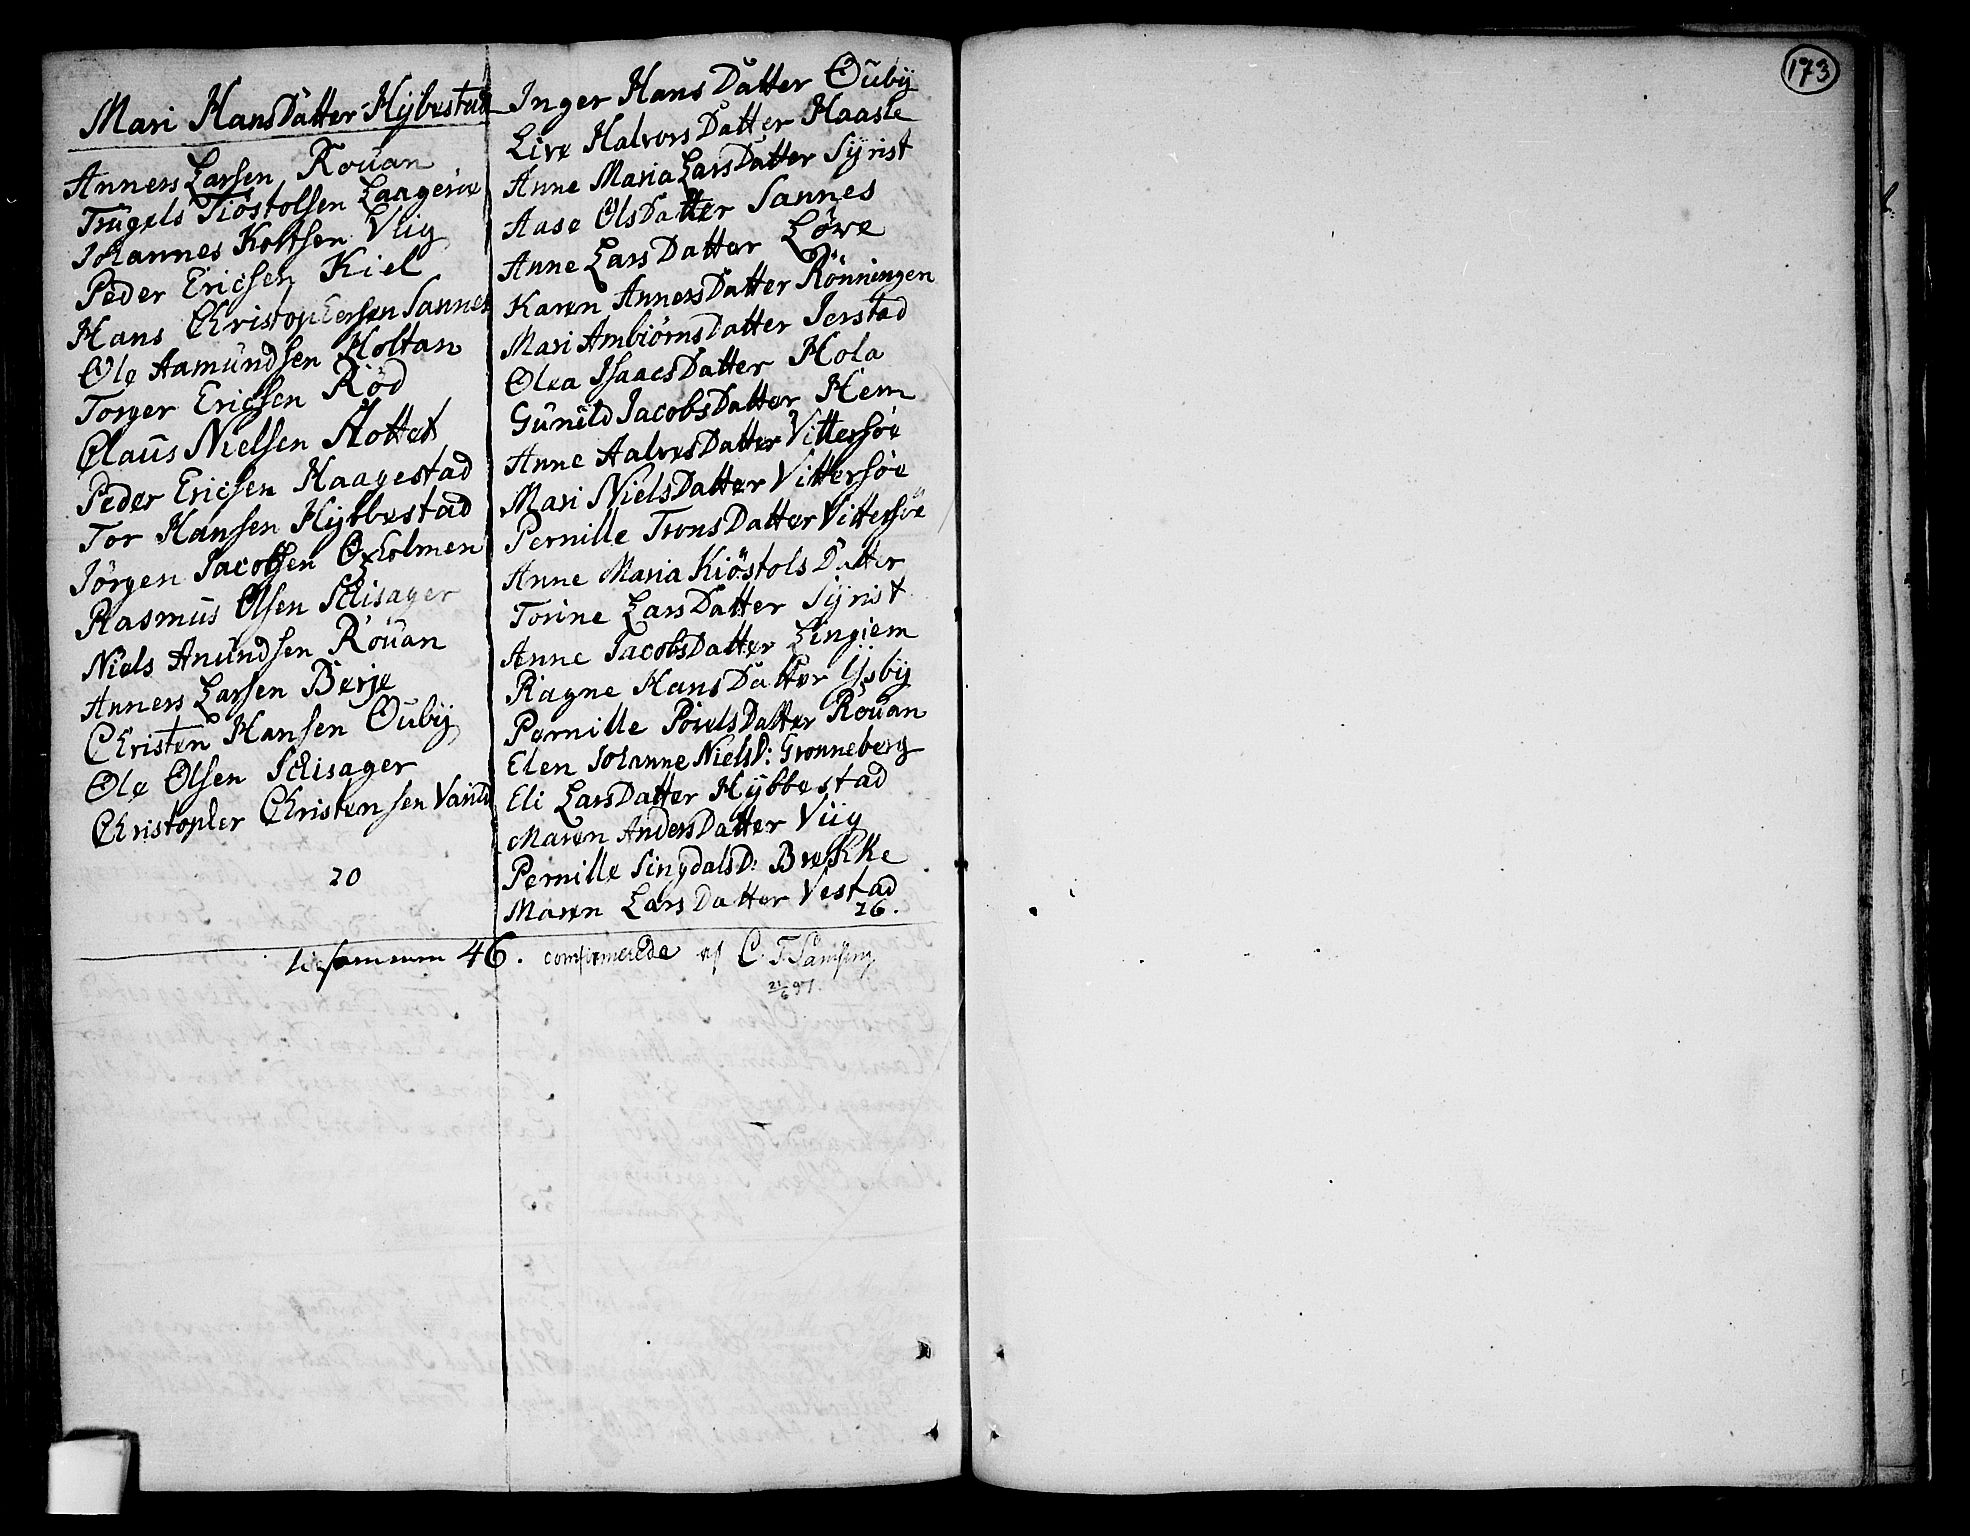 Mari HansDatter Hybestad
Anners Larsen Rouan
Trugels Tiostolsen Laagerøe
Johannes Koltsen Vlig
Peder Ericsen Kiel
Hans Christophersen Sannes
Ole Aamundsen Holtan
Torger Ericsen Röd
Claus Nielsen Hottet
Peder Ericsen Haagestad
Tor Hansen Hybbestad
Jörgen Jacobsen Oxholmen
Rasmus Olsen Schisager
Niels Anundsen Rouan
Anners Larsen Berje
Christen Hansen Ouby
Ole Olsen Schisager
Christopher Christensen Vanild
20
Inger HansDatter Ouby
Live HalvorsDatter Haasle
Anne Maria LarsDatter Syrist
Aase OlsDatter Sannes
Anne LarsDatter Löve
Karen AnnersDatter Rönningen
Mari AmbiörnsDatter Jerstad
Olea IsaacsDatter Hola
Gunild JacobsDatter Hem
Anne AalvesDatter Vittersöe
Mari NielsDatter Vittersöe
Pernille TronsDatter Vittersöe
Anne Maria KiöstolsDatter
Torine LarsDatter Syrist
Anne JacobsDatter Lengiem
Ragne HansDatter Ysby
Pernille PovelsDatter Rouan
Elen Johanne NielsD: Grønneberg
Eli LarsDatter Hybbestad
Maren AndersDatter Viig
Pernille SingdalsD: Brekke
Maren LarsDatter Vestad
26.
46. confirmerede af C. F.
21/6 97.
173